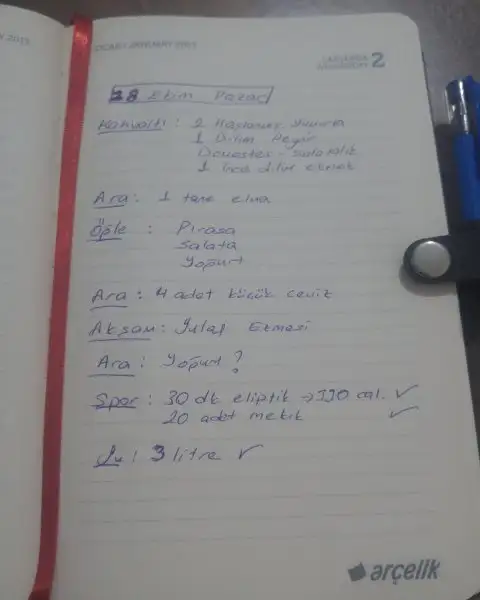 2013
OCAK / JANUARY 2013
ÇARŞAMBA
WEDNESDAY 2
28 Ekim Pazar
Kahvaltı : 2 Haşlanmış Yumurta
1 Dilim Peynir
Domates - Salatalık
1 ince dilim ekmek
Ara : 1 tane elma
Öğle : Pırasa
Salata
Yoğurt
Ara : 4 adet küçük ceviz
Akşam : Yulaf Ekmeği
Ara : Yoğurt ?
Spor : 30 dk eliptik → 330 cal. ✓
20 adet mekik ✓
Su : 3 litre ✓
arçelik